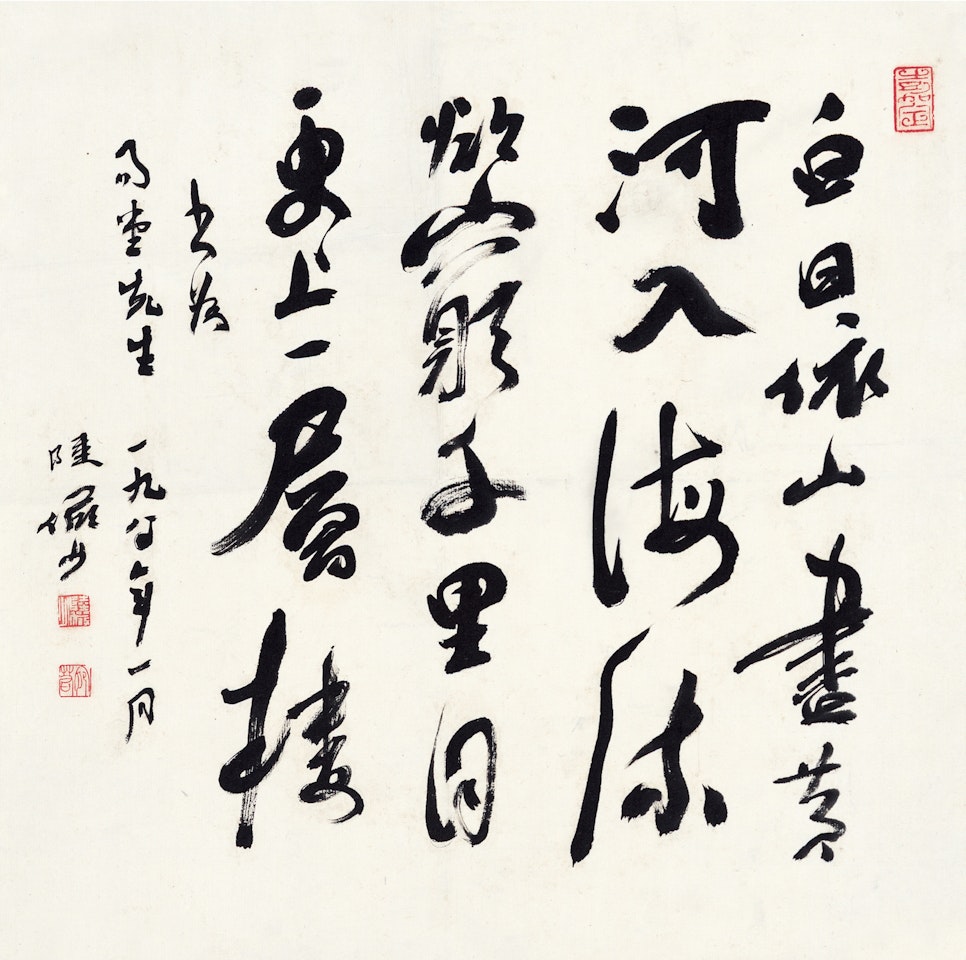 嘉定
白日依山盡黃
河入海流
欲窮千里目
更上一層樓
書為
堂先生 一九八年一月
陸儼少
宛若